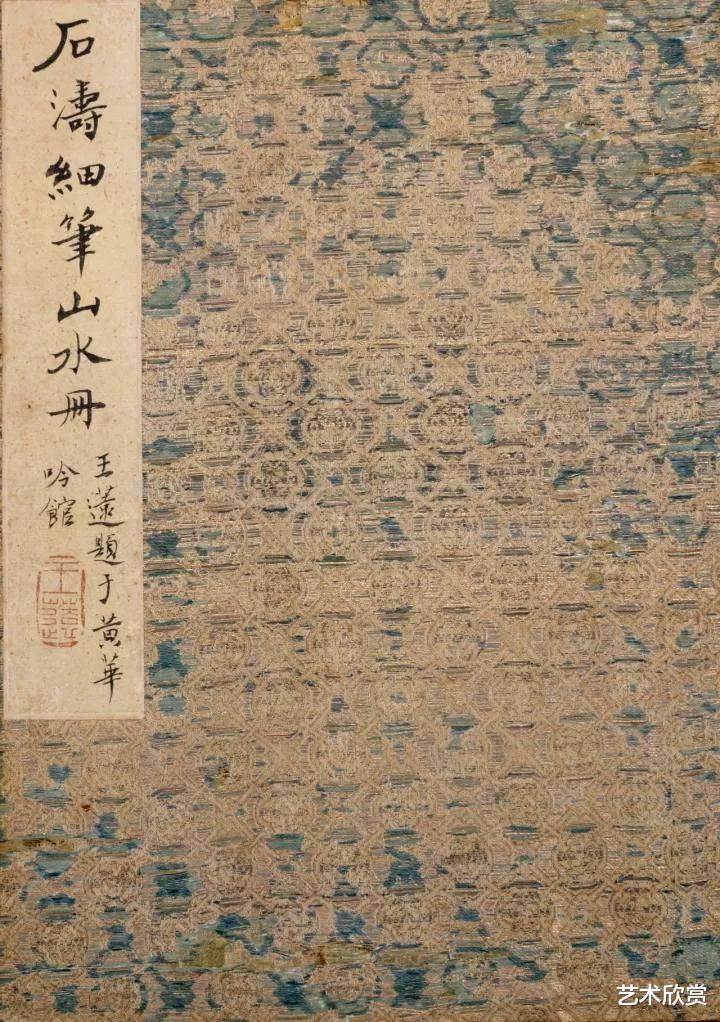 石濤細筆山水冊
王蘧題于黃華
吟館
艺术欣赏